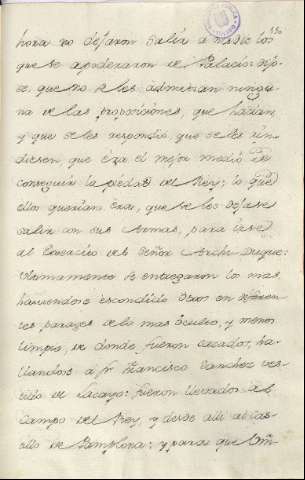 hora no dejaron salir a nadie los
que se apoderaron de Palacio: dijo-
se, que no se les admitian ningu-
na de las proposiciones, que hacian,
y que se les respondio, que se les rin-
diesen, que èra el mejor medio de
conseguir la piedad del Rey; lo que
ellos querian èra, que se los dejase
salir con sus Armas, para irse
al Exercito del Señor Archi-Duque:
Ultimamente se entregaron los mas
haviendose escondido otros en diferen-
tes parages de lo mas òculto, y menos
limpio, de donde fueron sacados, ha-
llandose a Dn. Francisco Sanchez ves-
tido de Lacayo: fueron llevados al
Campo del Rey, y desde alli al Cas-
tillo de Pamplona: y para que